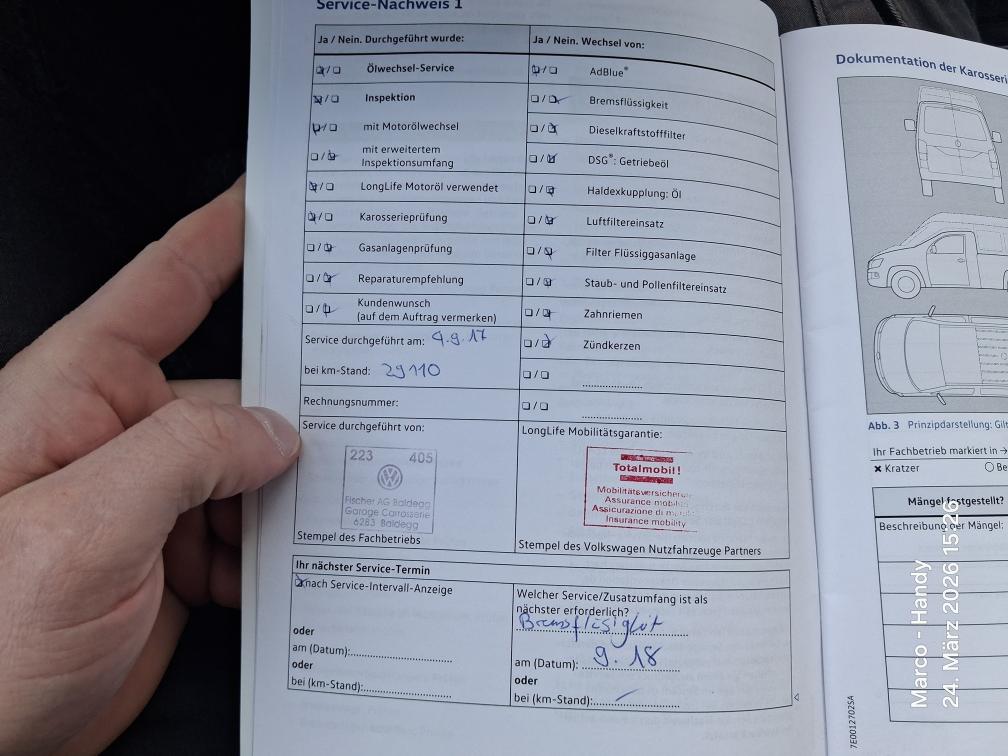 Service-Nachweis 1
Ja / Nein. Durchgeführt wurde:
Ölwechsel-Service
Inspektion
mit Motorölwechsel
mit erweitertem
Inspektionsumfang
LongLife Motoröl verwendet
Karosserieprüfung
Gasanlagenprüfung
Reparaturempfehlung
Kundenwunsch
(auf dem Auftrag vermerken)
Service durchgeführt am: 4.9.17
bei km-Stand: 29110
Rechnungsnummer:
Service durchgeführt von:
223 405
Fischer AG Baldegg
Garage Carrosserie
6283 Baldegg
Stempel des Fachbetriebs
Ja / Nein. Wechsel von:
AdBlue®
Bremsflüssigkeit
Dieselkraftstofffilter
DSG®: Getriebeöl
Haldexkupplung: Öl
Luftfiltereinsatz
Filter Flüssiggasanlage
Staub- und Pollenfiltereinsatz
Zahnriemen
Zündkerzen
LongLife Mobilitätsgarantie:
Totalmobil!
Mobilitätsversicherung
Assurance mobilité
Assicurazione di
Insurance mobility
Stempel des Volkswagen Nutzfahrzeuge Partners
Ihr nächster Service-Termin
nach Service-Intervall-Anzeige
oder
am (Datum):
oder
bei (km-Stand):
Welcher Service/Zusatzumfang ist als
nächster erforderlich?
Bremsflüsigkit
am (Datum): 9.18
oder
bei (km-Stand):
Dokumentation der Karosseri
Abb. 3 Prinzipdarstellung: Gilt
Ihr Fachbetrieb markiert in →
× Kratzer
○ Be
Mängel festgestellt?
Beschreibung der Mängel:
7E0012702SA
Marco - Handy
24. März 2026 15:26